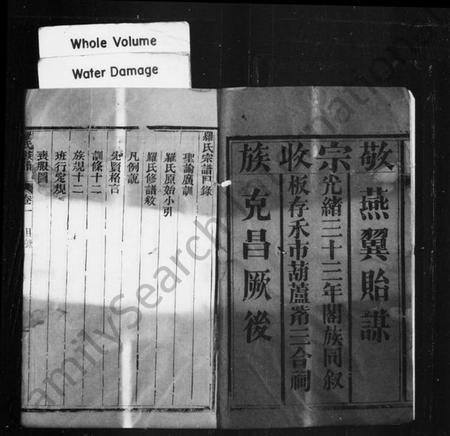 Whole Volume
Water Damage
敬宗收族
燕翼貽謀
光緒三十三年闔族同叙
板存禾市葫蘆常三合祠
克昌厥後
羅氏宗譜目錄
聖諭廣訓
羅氏原始小引
羅氏修譜敘
凡例説
先賢格言
訓條十二
族規十二
班行定規
喪服圖
卷一
目錄
FamilySearch